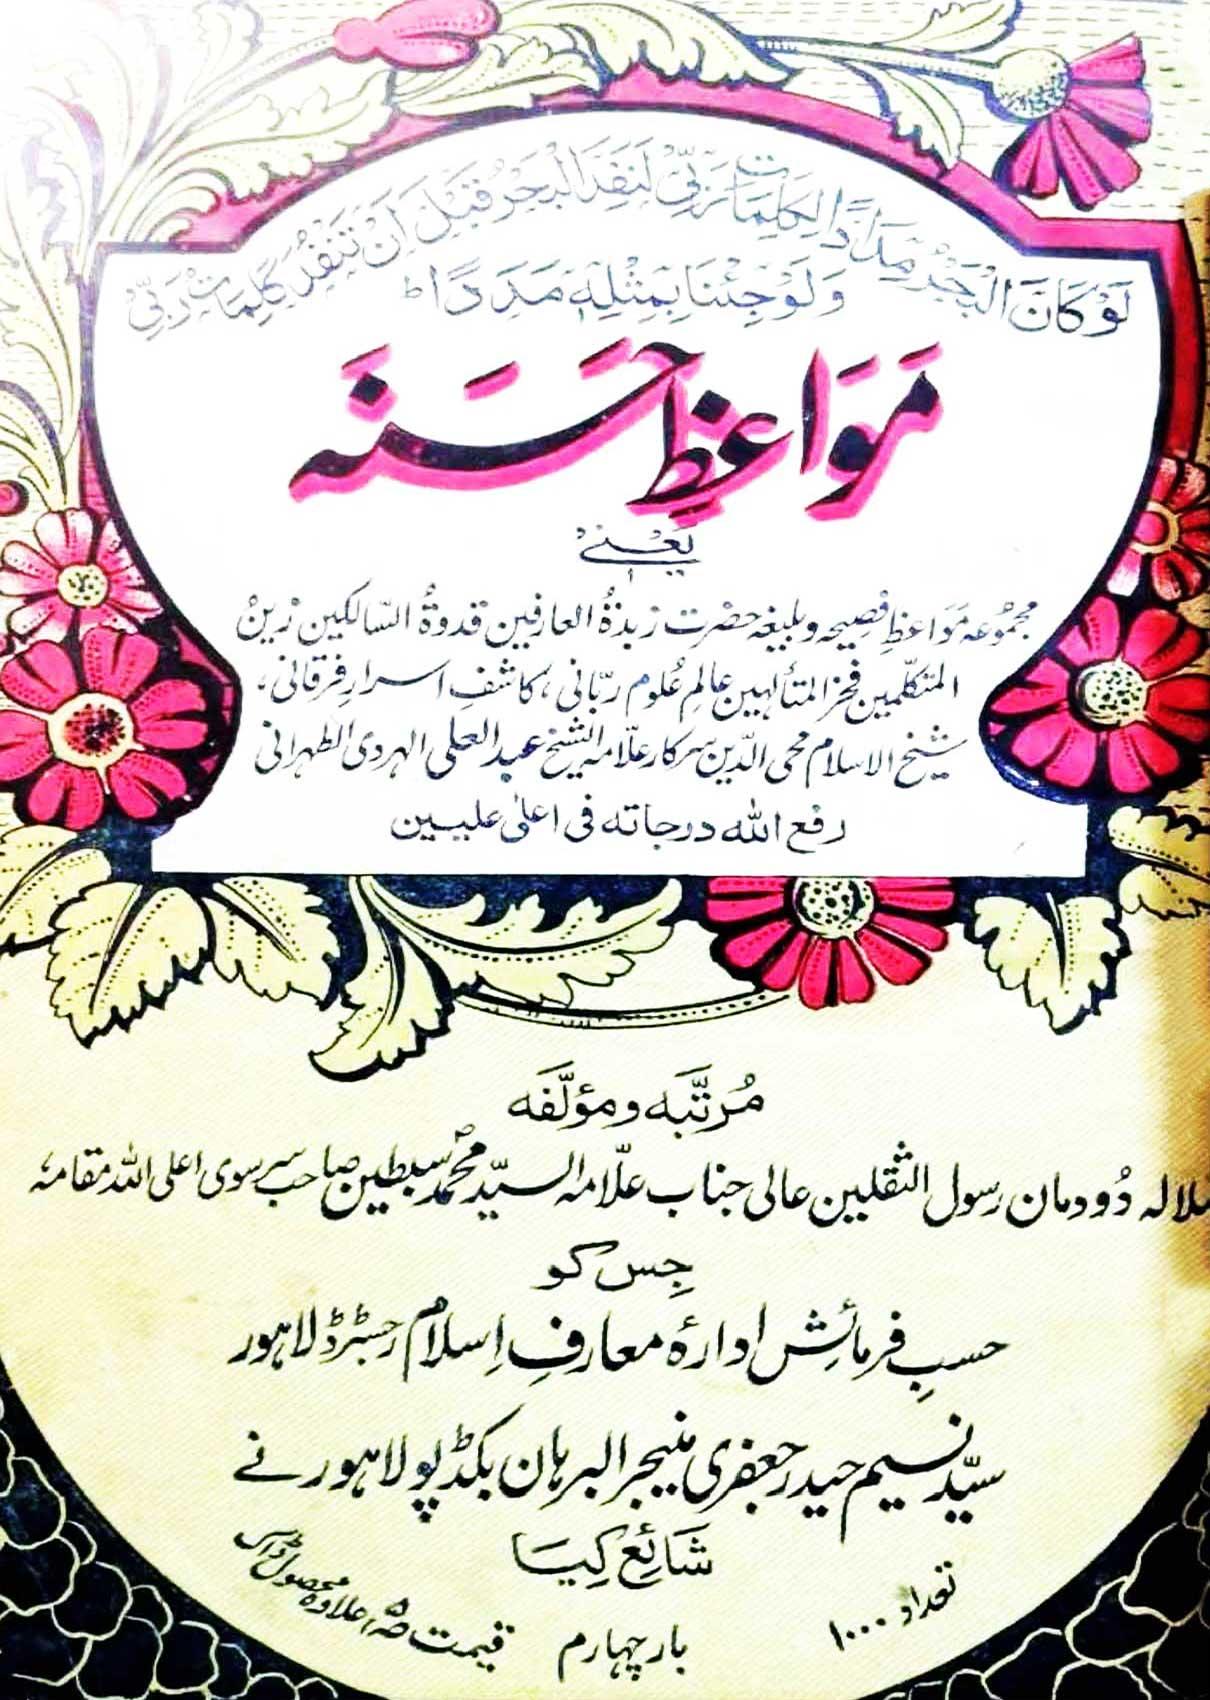 لَوْ كَانَ الْبَحْرُ مِدَادًا لِّكَلِمَاتِ رَبِّيْ لَنَفِدَ الْبَحْرُ قَبْلَ اَنْ تَنْفَدَ كَلِمَاتُ رَبِّيْ
وَلَوْ جِئْنَا بِمِثْلِهٖ مَدَدًا ط
مَوَاعِظِ حَسَنَہ
یَعْنِیْ
مجموعہ مَوَاعظِ فصیحہ و بلیغہ حضرت زبدۃُ العارفین قدوۃُ السّالکین زین
المتکلّمین فخر المتألہین عالمِ عُلوم ربّانی، کاشفِ اسرارِ فرقانی،
شیخ الاسلام محی الدّین سرکار علّامہ الشیخ عبد العلی الہروی الطہرانی
رفع اللہ درجاتہ فی اعلیٰ علیین
مُرتَّبَہ و مؤلَّفَہ
سلالہ دُودمان رسول الثقلین عالی جناب علّامہ السیّد محمّدؐ سبطین صاحب سرسوی اعلی اللہ مقامہٗ
جِس کو
حسبِ فرمائشِ ادارہ معارفِ اِسلام رجسٹرڈ لاہور
سیّد نسیم حیدر جعفری منیجر البرہان بکڈپو لاہور نے
شائع کِیَا
تعداد ۱۰۰۰
بار چہارم
قیمت علاوہ محصول ڈاک